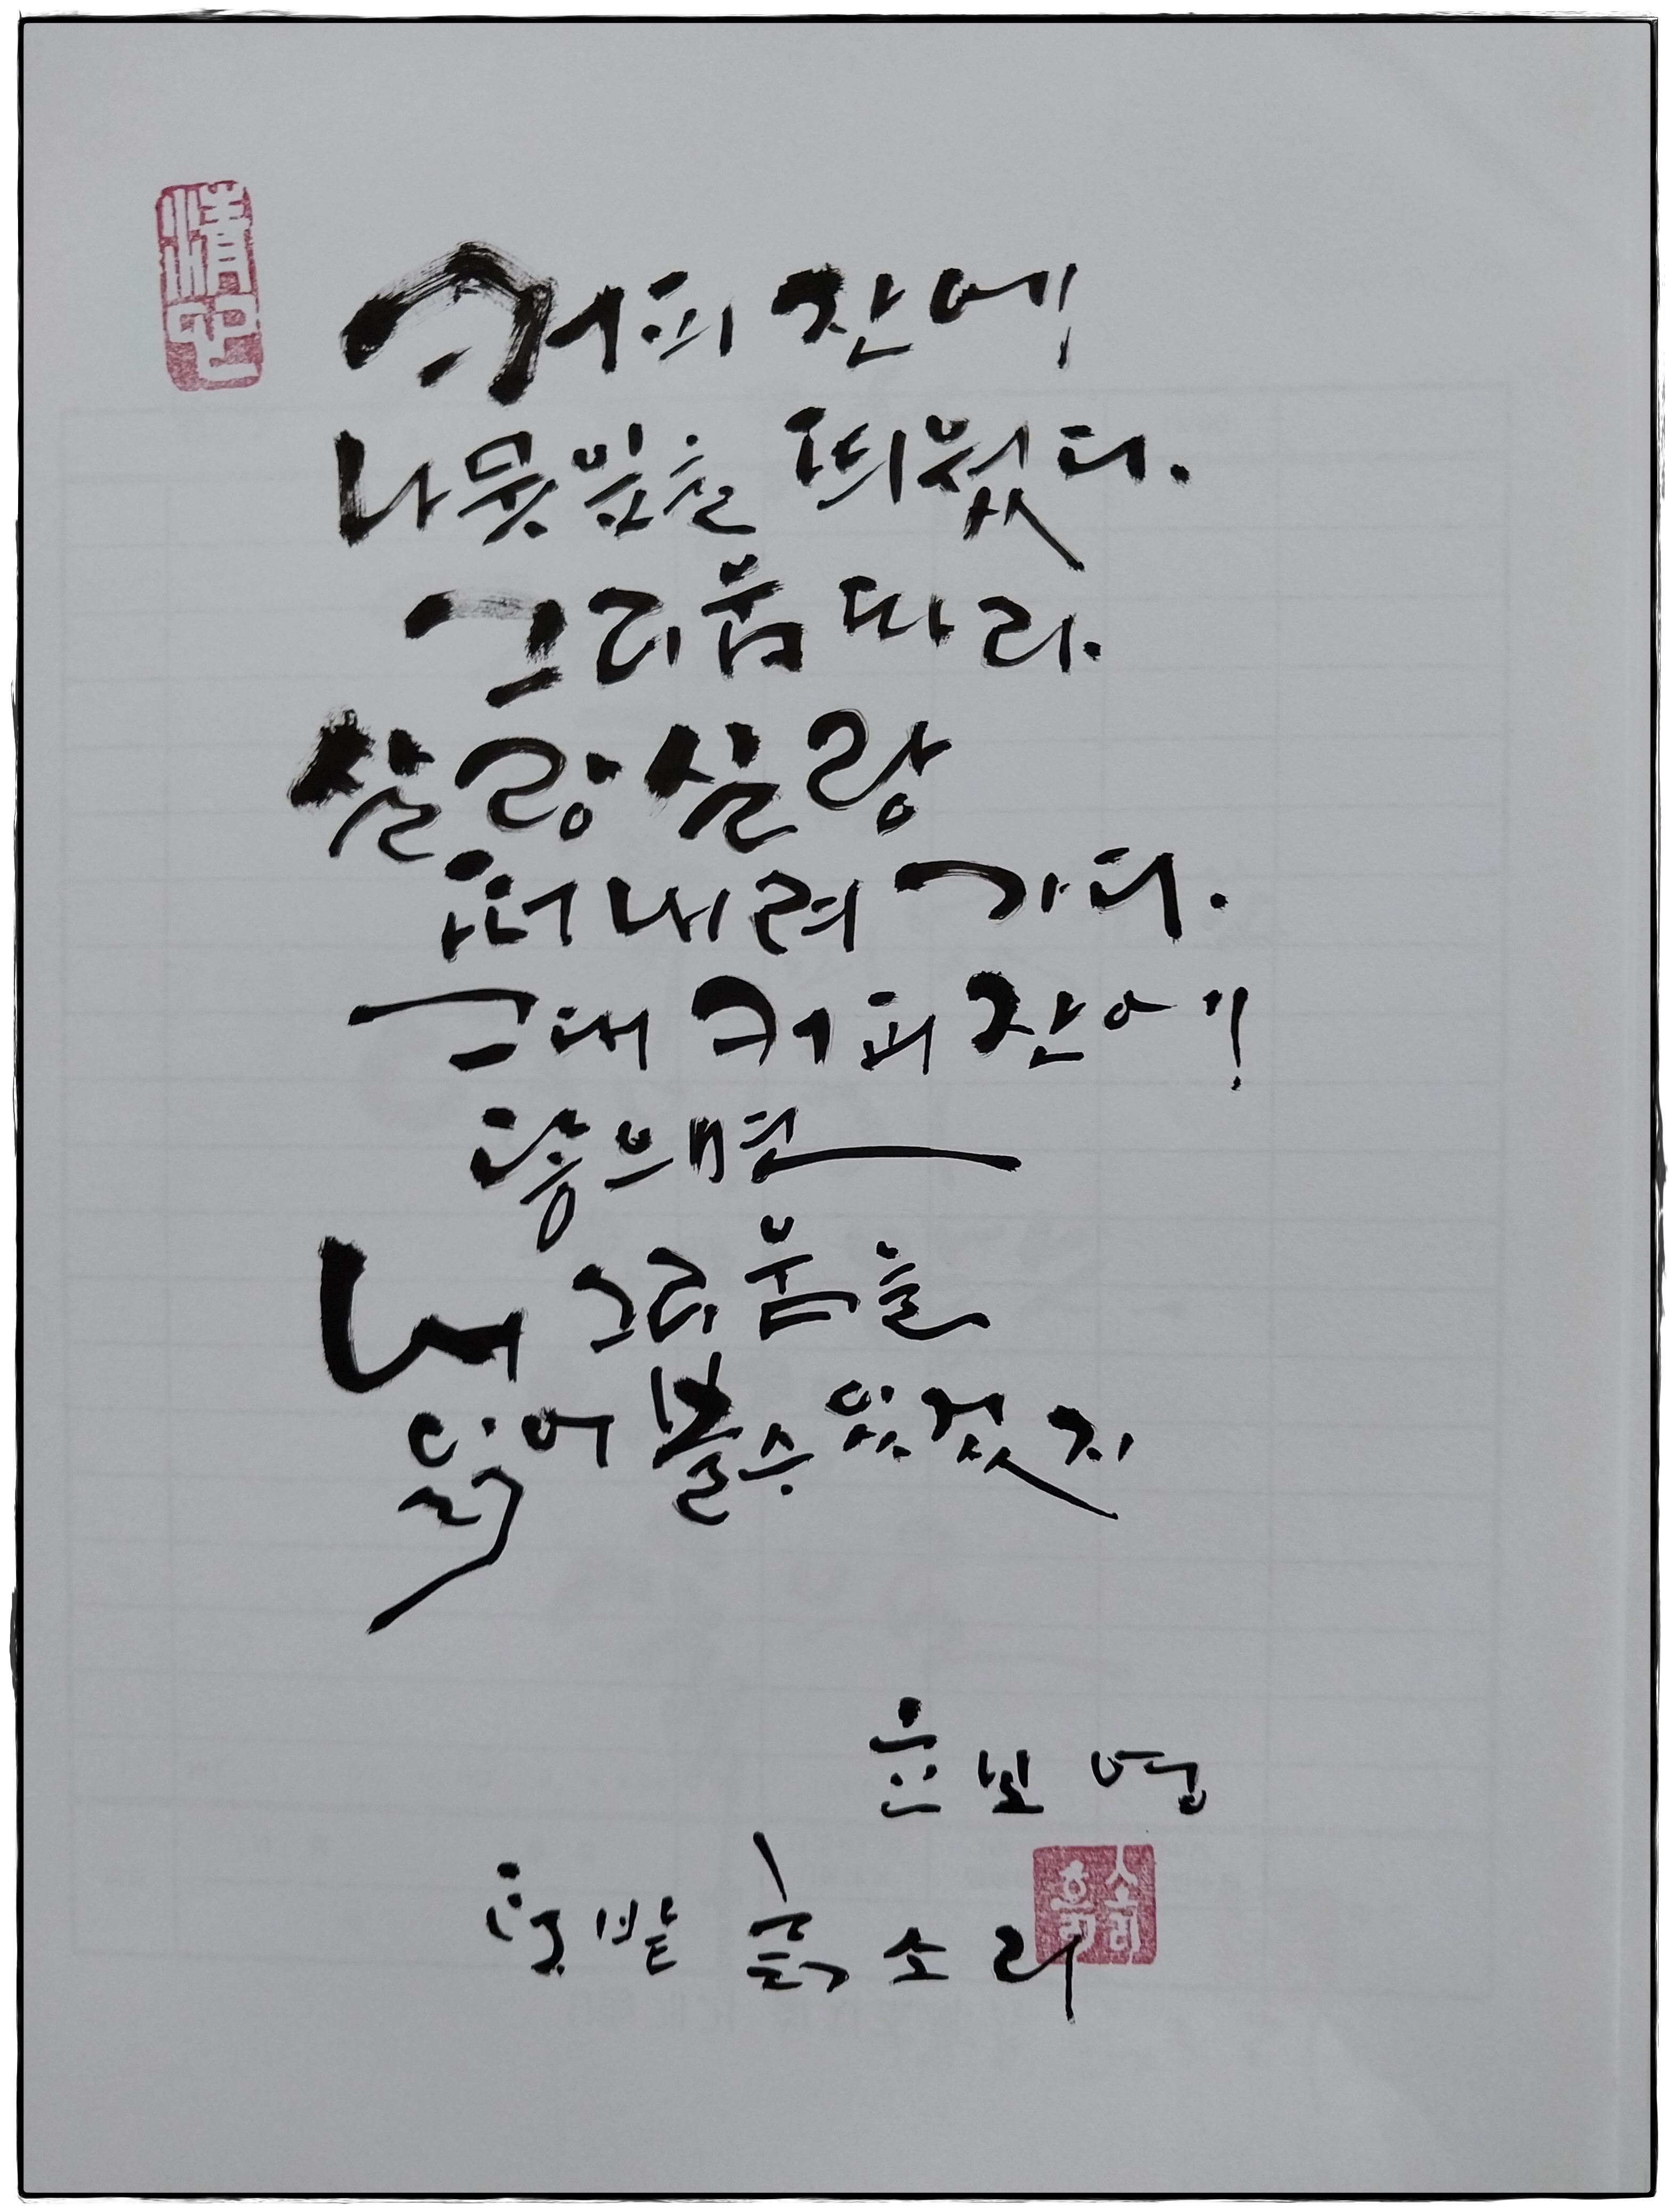 커피 잔에
나뭇잎을 띄웠다.
그리움 따라.
살랑살랑
떠내려 가다.
그대 커피 잔에
닿으면
내 그리움을
읽어 볼 수 있겠지
윤보영
흙소리
흙소리